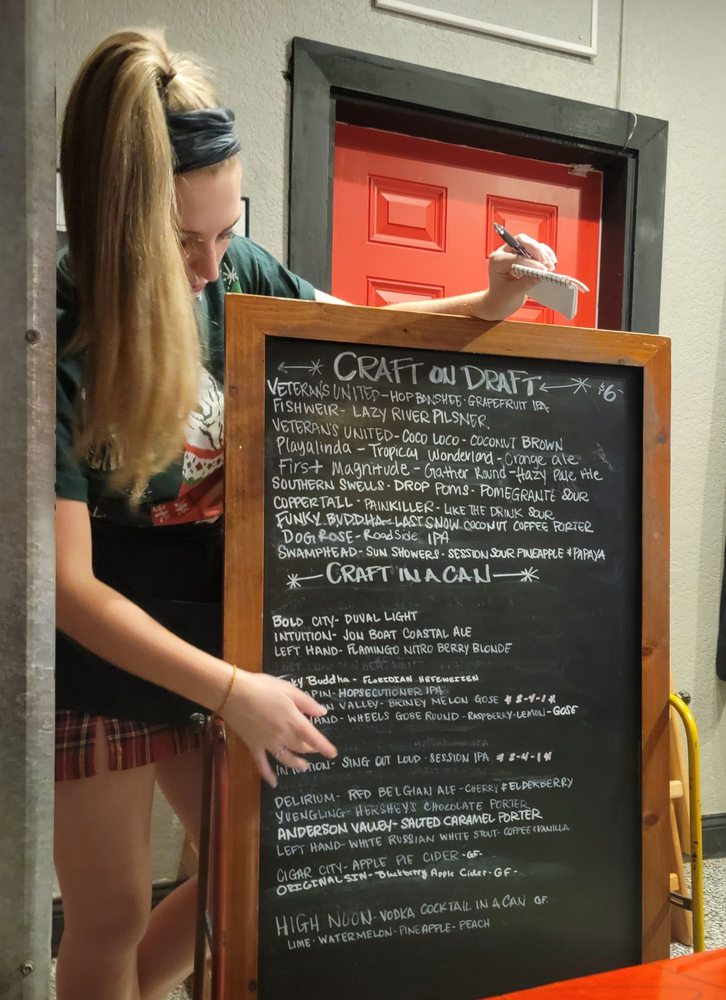 CRAFT ON DRAFT $6-
VETERAN'S UNITED-HOP BANSHEE-GRAPEFRUIT IPA
FISHWEIR- LAZY RIVER PILSNER
VETERAN'S UNITED-COCO LOCO-COCONUT BROWN
Playalinda - Tropical Wonderland - Orange ale
First Magnitude - Gather Round - Hazy Pale Ale
SOUTHERN SWELLS - DROP POMS - POMEGRANTE SOUR
COPPERTAIL - PAINKILLER - LIKE THE DRINK SOUR
FUNKY BUDDHA-LAST SNOW COCONUT COFFEE PORTER
DOG ROSE-ROADSIDE IPA
SWAMPHEAD-SUN SHOWERS-SESSION SOUR PINEAPPLE & PAPAYA
CRAFT IN A CAN
BOLD CITY- DUVAL LIGHT
INTUITION- JON BOAT COASTAL ALE
LEFT HAND- FLAMINGO NITRO BERRY BLONDE
Buddha - FLORIDIAN HEFEWEIZEN
HOPSECUTIONER IPA
VALLEY- BRINEY MELON GOSE *3-4-1*
HAND- WHEELS GOSE ROUND - RASPBERRY-LEMON-GOSE
SING OUT LOUD - SESSION IPA *3-4-1*
DELIRIUM- RED BELGIAN ALE-CHERRY & ELDERBERRY
YUENGLING-HERSHEY'S CHOCOLATE PORTER
ANDERSON VALLEY- SALTED CARAMEL PORTER
LEFT HAND-WHITE RUSSIAN WHITE STOUT- COFFEE & VANILLA
CIGAR CITY- APPLE PIE CIDER -GF-
ORIGINAL SIN- Blackberry Apple Cider -GF-
HIGH NOON-VODKA COCKTAIL IN A CAN GF
LIME-WATERMELON-PINEAPPLE-PEACH